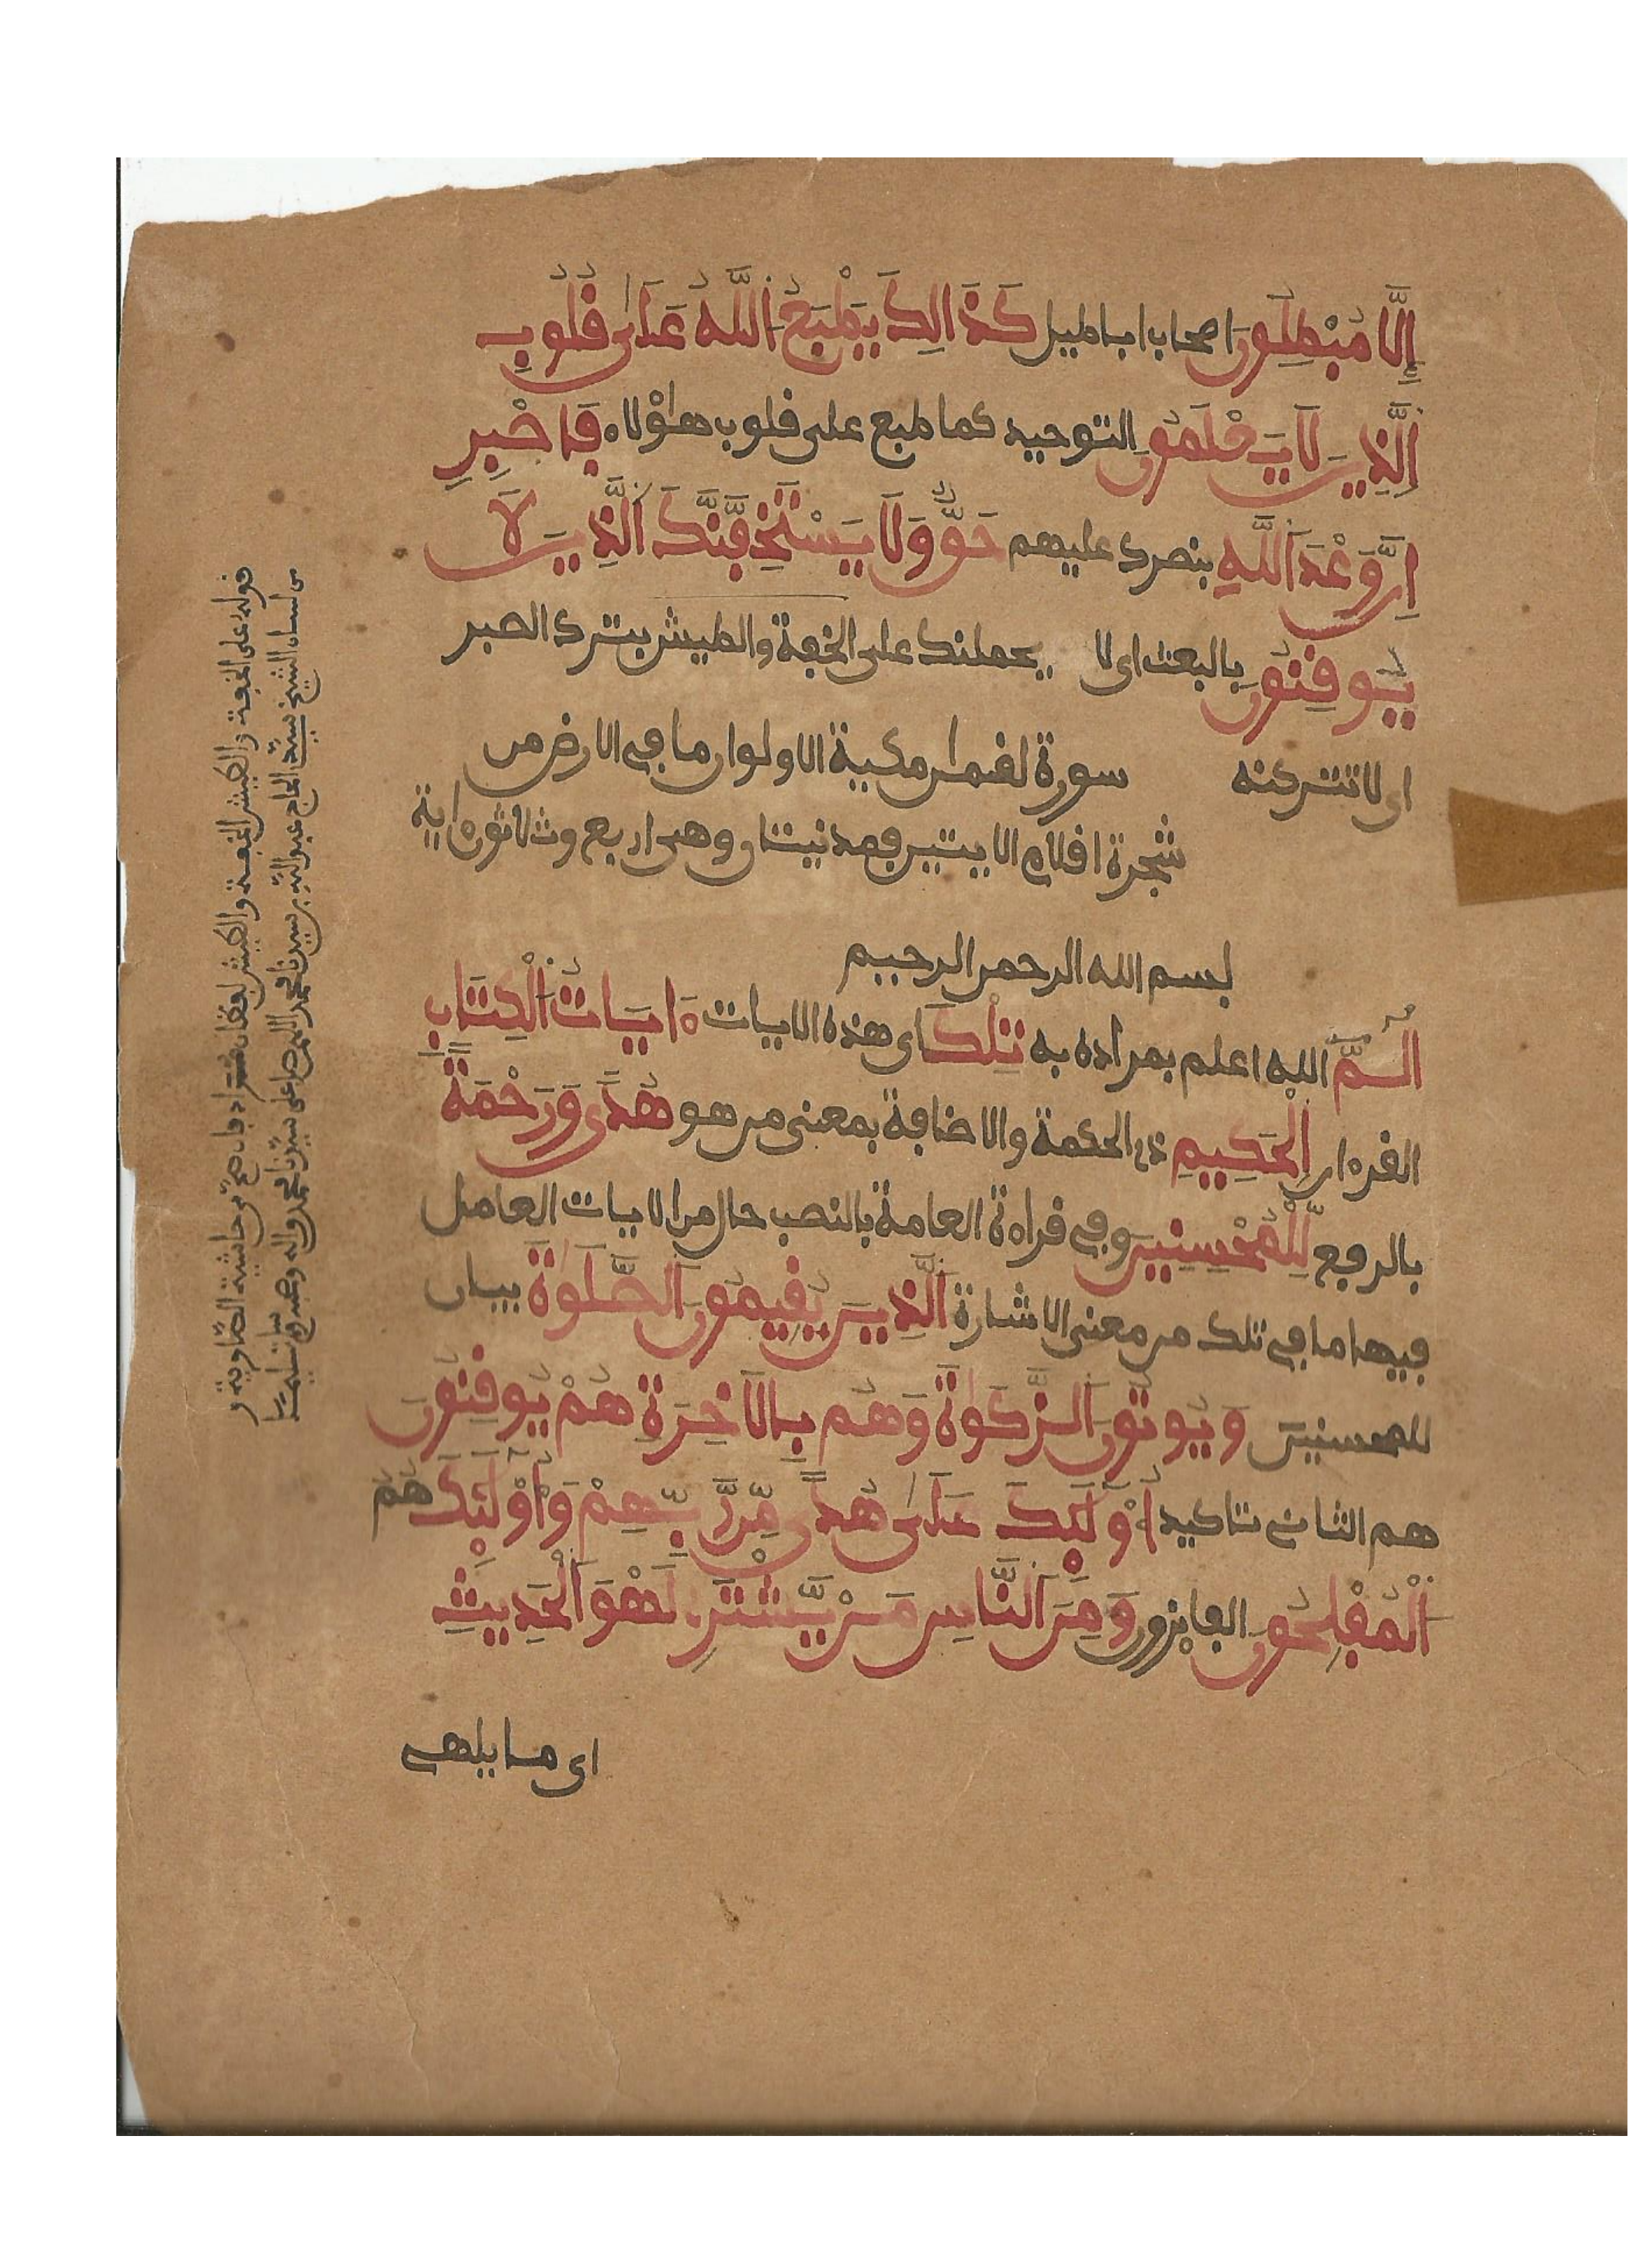 إِلَّا مُبْطِلُونَ اصحاب اباطيل كَذَالِكَ يَطْبَعُ اَللَّهُ عَلَىٰ قُلُوبِ
اَلَّذِينَ لَا يَعْلَمُونَ التوحيد كما طبع على قلوب هاؤلاء فَاصْبِرِ
اِنَّ وَعْدَ اَللَّهِ بنصرك عليهم حَقٌّ وَلَا يَسْتَخِفَّنَّكَ اَلَّذِينَ لَا
يُوقِنُونَ بالبعث اى لا يحملنك على الخفة والطيش بترك الصبر
اى لا تتركنه سورة لقمان مكية الا ولو ان ما في الارض من
شجرة اقلام الايتين فمدنيتان وهى اربع وثلاثون ءاية
بسم الله الرحمن الرحيم
الٓمّٓ الله اعلم بمراده به تِلْكَ اى هذه الايات ءَايَاتُ اَلْكِتَابِ
القرءان اِلْحَكِيمِ ذى الحكمة والاضافة بمعنى من هو هُدًى وَرَحْمَةً
بالرفع لِّلْمُحْسِنِينَ وفي قراءة العامة بالنصب حال من الايات العامل
فيها ما في تلك من معنى الاشارة اَلَّذِينَ يُقِيمُونَ اَلصَّلَوٰةَ بيان
للمحسنين وَيُوتُونَ اَلزَّكَوٰةَ وَهُم بِالَاخِرَةِ هُمْ يُوقِنُونَ
هم الثاني تاكيد أُوْلَٰئِكَ عَلَىٰ هُدًى مِّن رَّبِّهِمْ وَأُوْلَٰئِكَ هُمُ
اُلْمُفْلِحُونَ الفايزون وَمِنَ اَلنَّاسِ مَنْ يَّشْتَرِے لَهْوَ اَلْحَدِيثِ
اى ما يلهى
قوله على الخفة والطيش الخفة والطيش لفظان مترادفان صح من حاشية الصاوية و
من لسان الشيخ سيد الحاج عبد الله بن سيدنا محمد اللهم صل على سيدنا محمد واله وصحبه وسلم تسليما